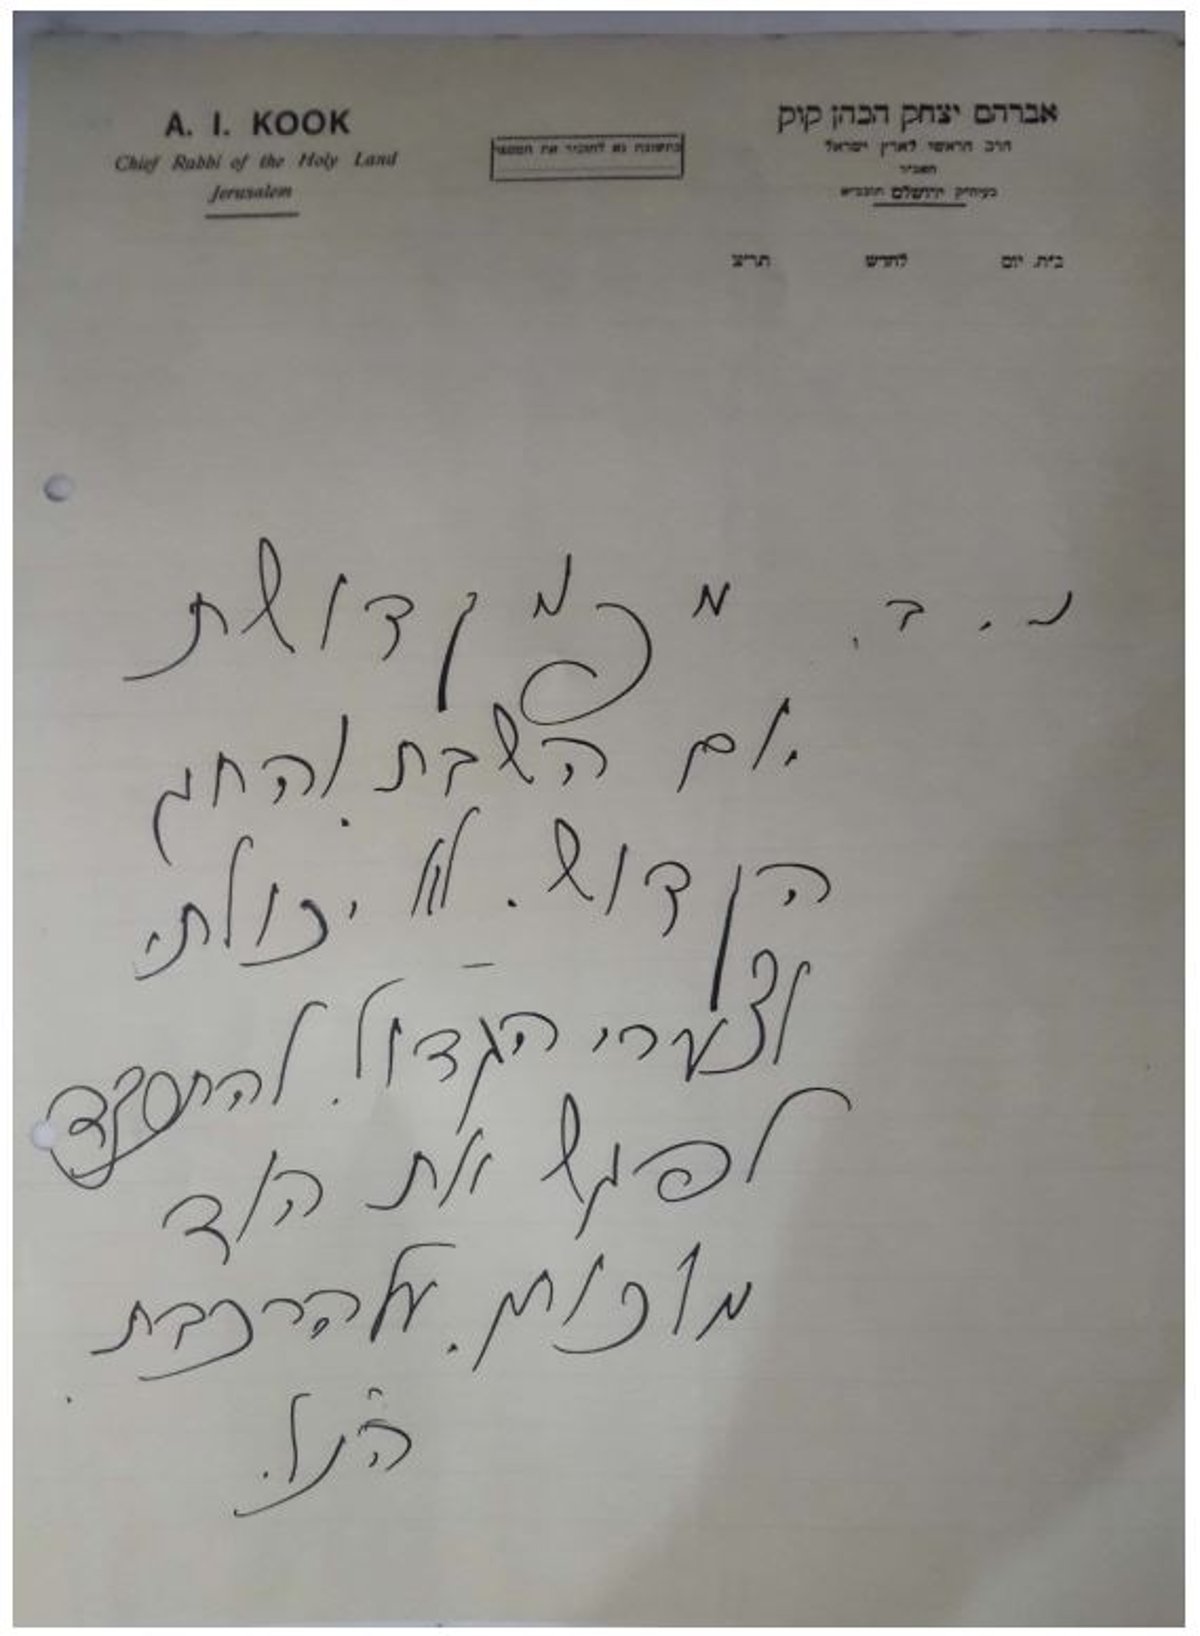 A. I. KOOK
Chief Rabbi of the Holy Land
Jerusalem
בתשובה נא להזכיר את המספר
אברהם יצחק הכהן קוק
הרב הראשי לארץ ישראל
בעיה"ק ירושלם תובב"א
ב"ה. יום לחדש תרצ
נ. ב. מפני קדושת
יום השבת והחג
הקדוש. לא יכולתי
לצערי הגדול. להתכבד
לפגש את הוד
מלכותם. על הרכבת
הנ"ל.